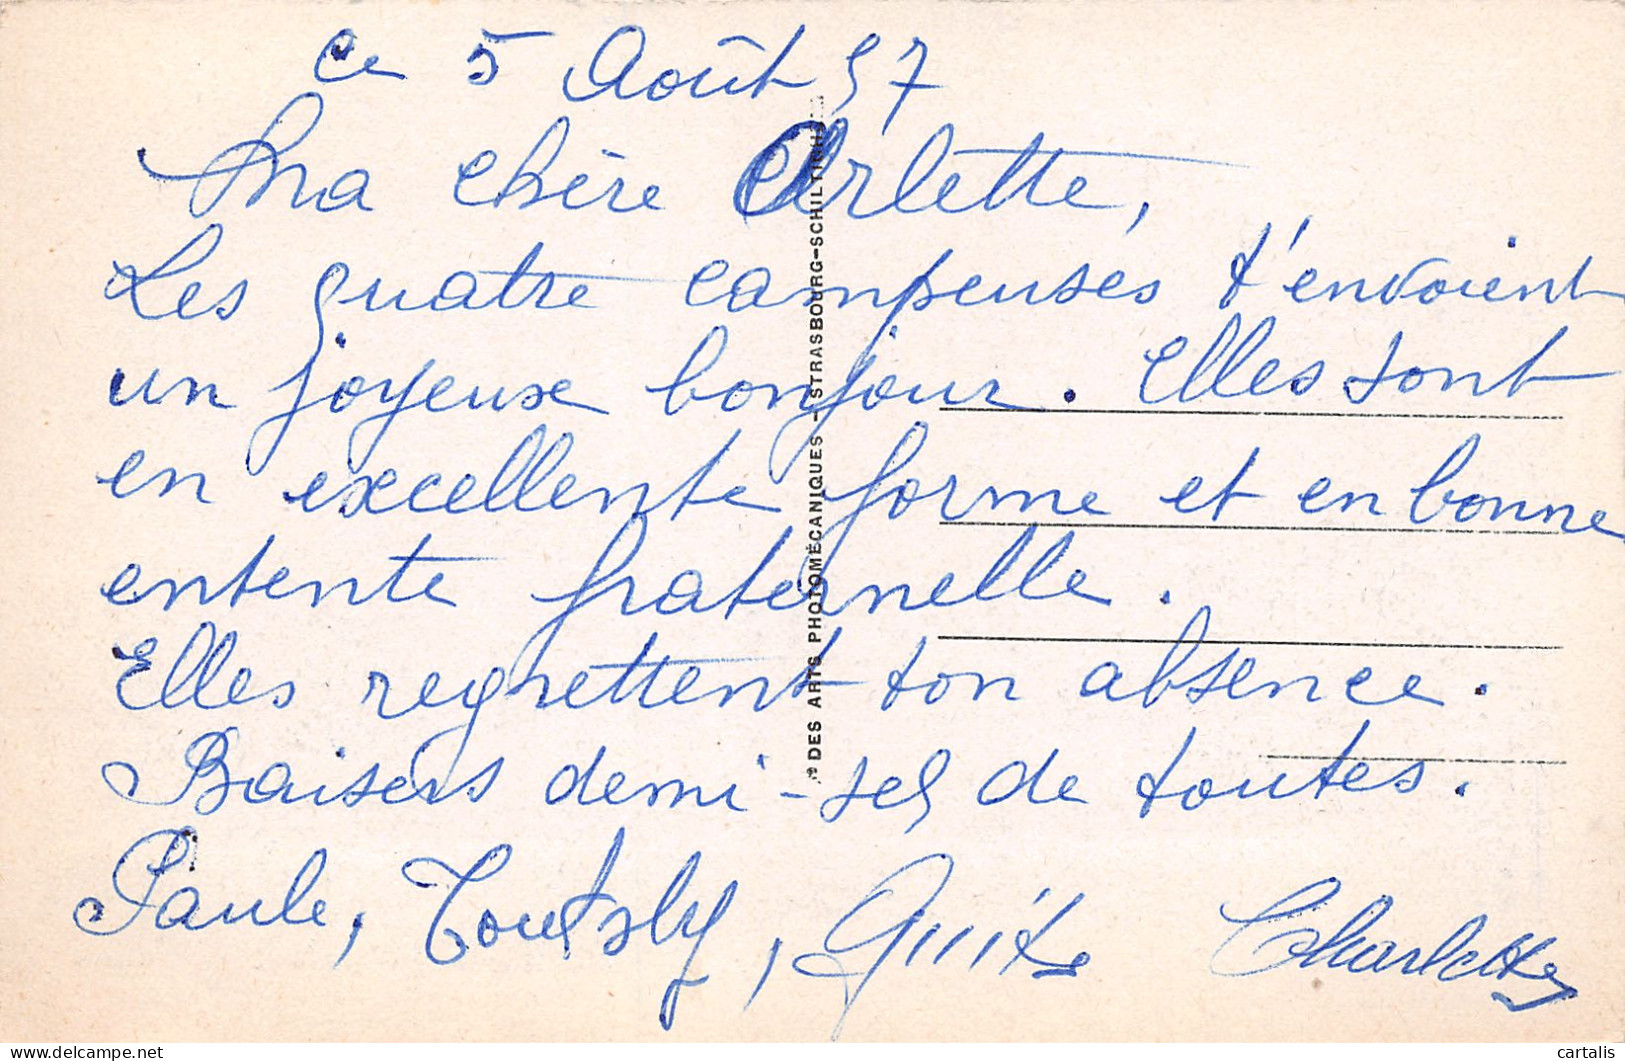 ce 5 Août 57
Ma chère Arlette,
Les quatre campeuses t'envoient
un joyeuse bonjour. Elles sont
en excellente forme et en bonne
entente fraternelle.
Elles regrettent ton absence.
Baisers demi-sel de toutes.
Paule, Charlotte
DES ARTS PHOTOMÉCANIQUES - STRASBOURG-SCHILTIGH
cartalis